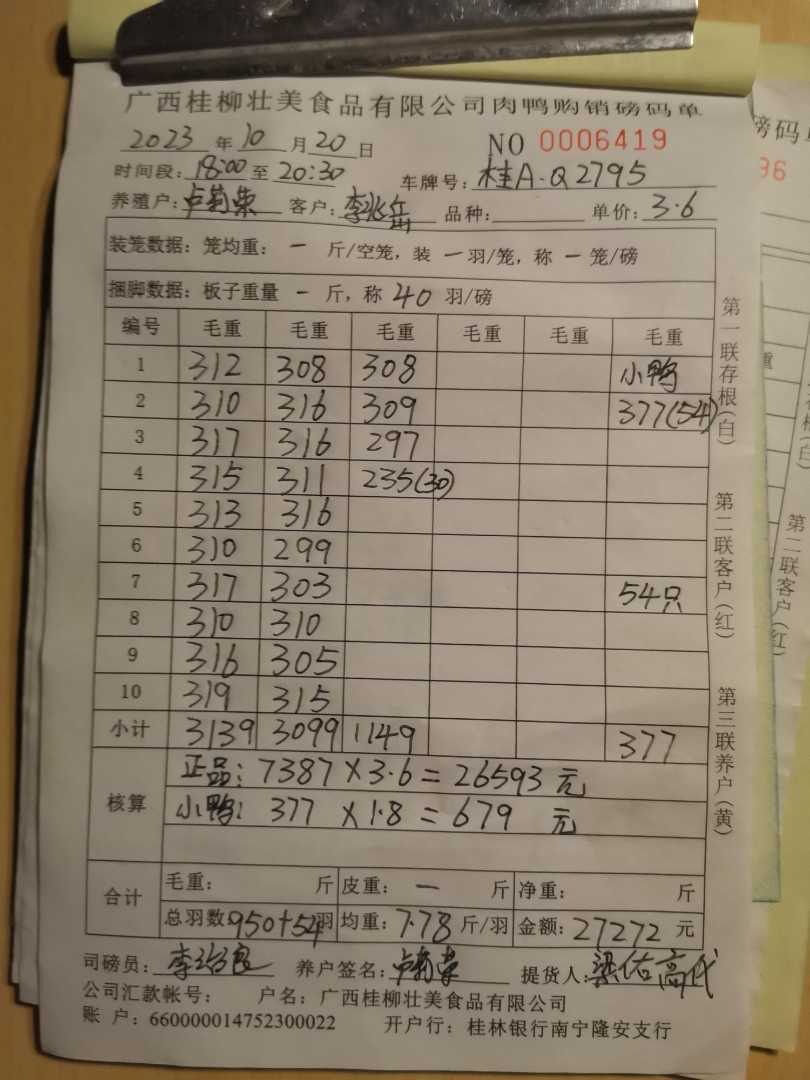 广西桂柳壮美食品有限公司肉鸭购销磅码单
2023 年 10 月 20 日 NO 0006419
时间段: 18:00 至 20:30 车牌号: 桂A·Q2795
养殖户: 卢菊荣 客户: 李兆岳 品种: 单价: 3.6
装笼数据: 笼均重: 一 斤/空笼, 装 一 羽/笼, 称 一 笼/磅
捆脚数据: 板子重量 一 斤, 称 40 羽/磅
编号 毛重 毛重 毛重 毛重 毛重 毛重
1 312 308 308 小鸭
2 310 316 309 377(54)
3 317 316 297
4 315 311 235(30)
5 313 316
6 310 299
7 317 303 54只
8 310 310
9 316 305
10 319 315
小计 3139 3099 1149 377
核算 正品: 7387×3.6=26593 元
小鸭: 377×1.8=679 元
合计 毛重: 斤 皮重: 一 斤 净重: 斤
总羽数 950+54 羽 均重: 7.78 斤/羽 金额: 27272 元
司磅员: 养户签名: 卢菊荣 提货人: 梁佑高代
公司汇款帐号: 户名: 广西桂柳壮美食品有限公司
账 户: 660000014752300022 开户行: 桂林银行南宁隆安支行
第一联存根(白)
第二联客户(红)
第三联养户(黄)
磅码
96
重
第二联客户(红)